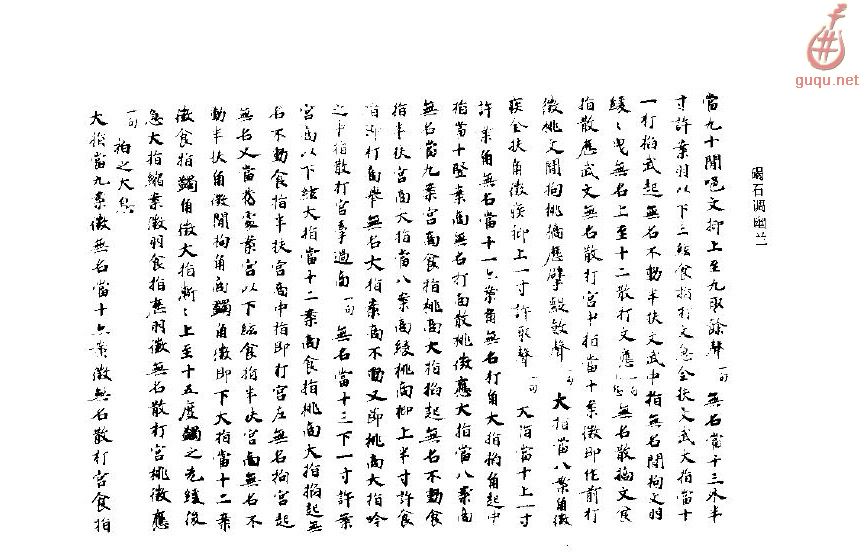 碣石调幽兰
當九十間嗯文抑上至九取餘聲一句無名當十三外半
寸許案羽以下三絃食指打文急全扶文武大指當十
一打搯武起無名不動半扶文武中指無名間拘文羽
緩〻無名上至十二散打文應一句無名散文食
指散應武文無名散打宮中指當十案徵即作前打
徵挑文間拘挑應擘聲一句大指當八案角徵
全扶角徵抑上一寸許取聲一句大指當十上一寸
許案角無名當十一案商無名打角大指搯角起中
指當十案商無名打商散挑徵應大指當八案商
無名當九案宮商食指挑商大指搯起無名不動食
指半扶宮商大指當八案商緩挑商抑上半寸許食
打商無名大指案商不動又即挑商大指吟
之中指散打宮過商一句無名當十三下一寸許案
宮商以下絃大指當十二案商食指挑商大指搯起無
名不動食指半扶宮商中指即打宮左無名拘宮起
無名又當舊處案宮以下絃食指半扶宮商無名不
動半扶角徵間拘角商角徵即下大指當十二案
徵食指角徵大指漸〻上至十五度之先緩後
急大指案徵羽食指應羽徵無名散打宮挑徵應
一句拍之大息
大指當九案徵無名當十案徵無名散打宮食指
guqu.net